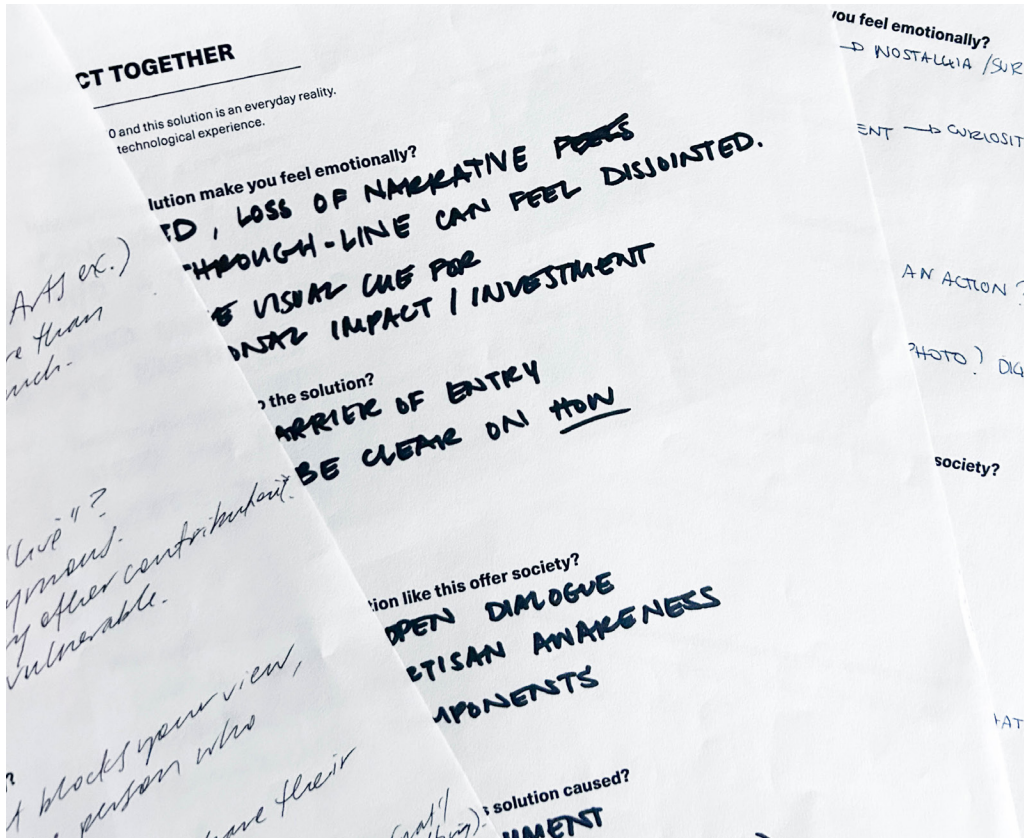 CT TOGETHER
0 and this solution is an everyday reality.
technological experience.
lution make you feel emotionally?
ED, LOSS OF NARRATIVE
THROUGH-LINE CAN FEEL DISJOINTED.
E VISUAL CUE FOR
ONAL IMPACT / INVESTMENT
o the solution?
ARRIER OF ENTRY
BE CLEAR ON HOW
tion like this offer society?
OPEN DIALOGUE
RTISAN AWARENESS
MPONENTS
s solution caused?
NMENT
Arts ex.)
re than
uch.
"live"?
ymous.
y other contributent.
vulnerable.
t blocks your view,
person who
have their
you feel emotionally?
→ NOSTALGIA / SUR
ENT → CURIOSIT
AN ACTION?
PHOTO? DIG
society?